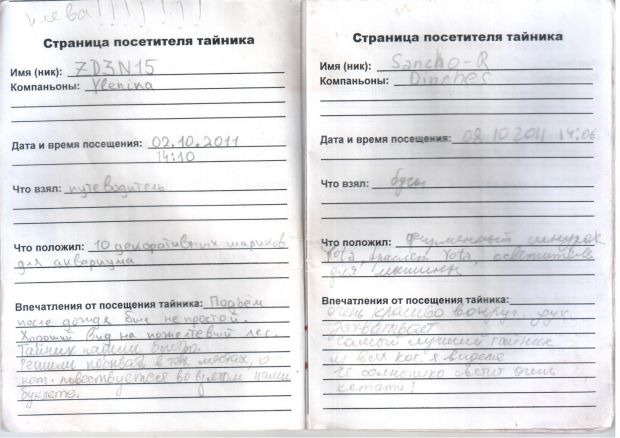 клёва!!!!!!
Страница посетителя тайника
Имя (ник): ZD3N15
Компаньоны: Ylenika
Дата и время посещения: 02.10.2011
14:10
Что взял: путеводитель
Что положил: 10 декоративных шариков
для аквариума
Впечатления от посещения тайника: Подъём
после дождя был не простой.
Хороший вид на пожелтевший лес.
Тайник нашли быстро.
Решили побывать в тех местах, о
кот. повествуется во взятом нами
буклете.
Страница посетителя тайника
Имя (ник): Sancho-R
Компаньоны:
Дата и время посещения: 02.10.2011 14:06
Что взял: бусы
Что положил: Фирменный шнурок
Yota, браслет Yota, освежитель
для машины
Впечатления от посещения тайника:
очень красиво вокруг дух
захватывает
самый лучший тайник
из всех кот. я видела
и солнышко светит очень
кстати!